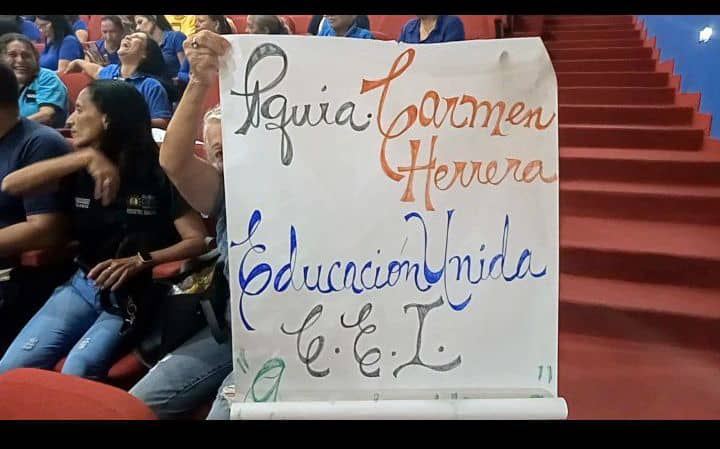 Pquia. Carmen
Herrera
Educación Unida
C.E.I.